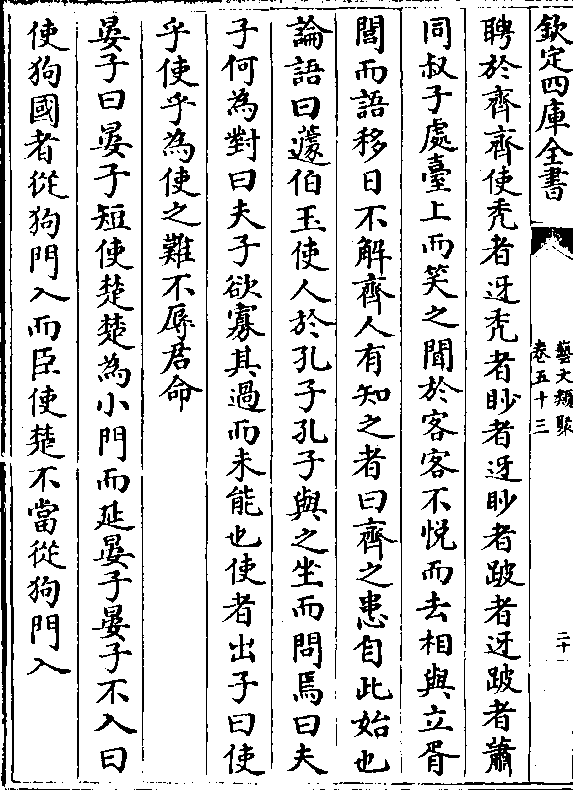 欽定四庫全書
藝文類聚
卷五十三
二十
聘於齊齊使秃者迓秃者眇者迓眇者跛者迓跛者蕭
同叔子處臺上而笑之聞於客客不悦而去相與立胥
閭而語移日不解齊人有知之者曰齊之患自此始也
論語曰蘧伯玉使人於孔子孔子與之坐而問焉曰夫
子何為對曰夫子欲寡其過而未能也使者出子曰使
乎使乎為使之難不辱君命
晏子曰晏子短使楚楚為小門而延晏子晏子不入曰
使狗國者從狗門入而臣使楚不當從狗門入